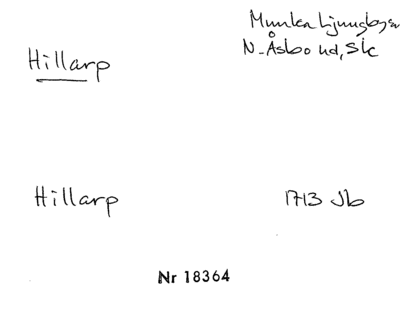 Munka Ljungbya
N. Åsbo hd, Sk
Hillarp
Hillarp
1713 Jb
Nr 18364